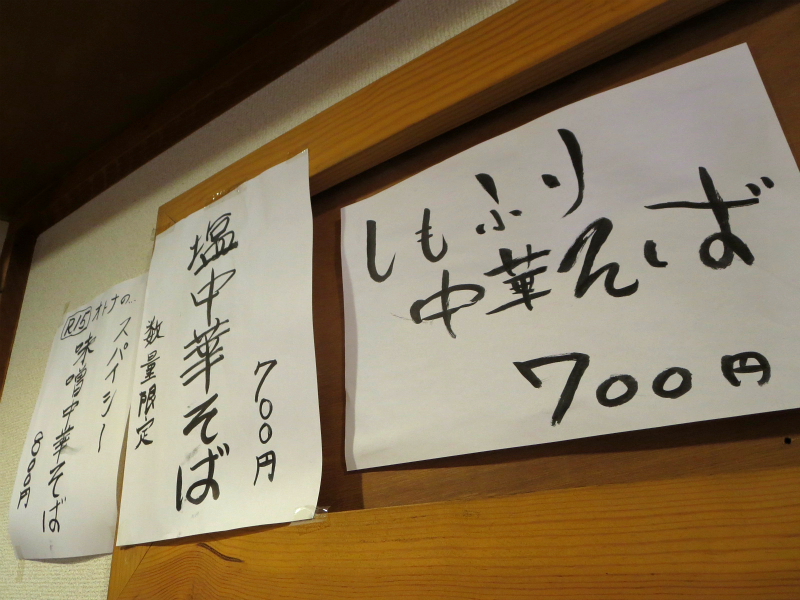 しもふり
中華そば
700円
塩中華そば
数量限定
700円
R15 オトナの..
スパイシー
味噌中華そば
800円